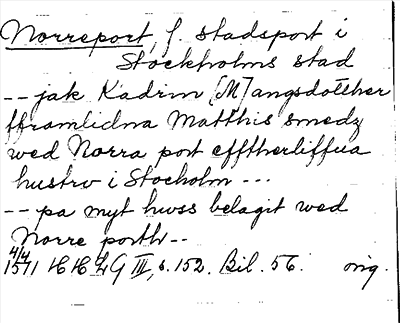 Norreport, f. stadsport i
Stockholms stad
-- jak Kadrin [M]angsdotther
fframlidna Matthis smedz
wed Norra port efftherliffua
hustrv i Stocholm ---
-- pa myt hwss belagit wed
Norre porth --
4/4
1571 H H LG III, s. 152. Bil. 56. orig.